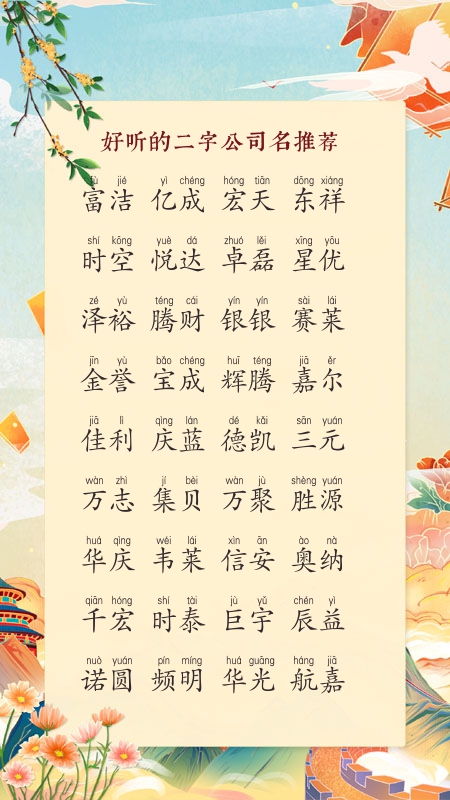 好听的二字公司名推荐
fù jié yì chéng hóng tiān dōng xiáng
富洁 亿成 宏天 东祥
shí kōng yuè dá zhuó lěi xīng yōu
时空 悦达 卓磊 星优
zé yù téng cái yín yín sài lái
泽裕 腾财 银银 赛莱
jīn yù bǎo chéng huī téng jiā ěr
金誉 宝成 辉腾 嘉尔
jiā lì qìng lán dé kǎi sān yuán
佳利 庆蓝 德凯 三元
wàn zhì jí bèi wàn jù shèng yuán
万志 集贝 万聚 胜源
huá qìng wéi lái xìn ān ào nà
华庆 韦莱 信安 奥纳
qiān hóng shí tài jù yǔ chén yì
千宏 时泰 巨宇 辰益
nuò yuán pín míng huá guāng háng jiā
诺圆 频明 华光 航嘉